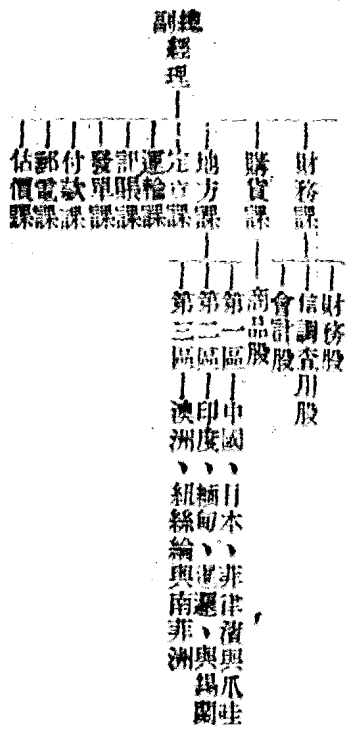 總副經理
財務課
購貨課
地方課
定貨課
運輸課
記賬課
發單課
付款課
郵電課
估價課
財務股
信用調查股
會計股
商品股
第一區
第二區
第三區
中國、日本、菲律濱與爪哇
印度、緬甸、暹邏、與錫蘭
澳洲、紐絲綸與南非洲